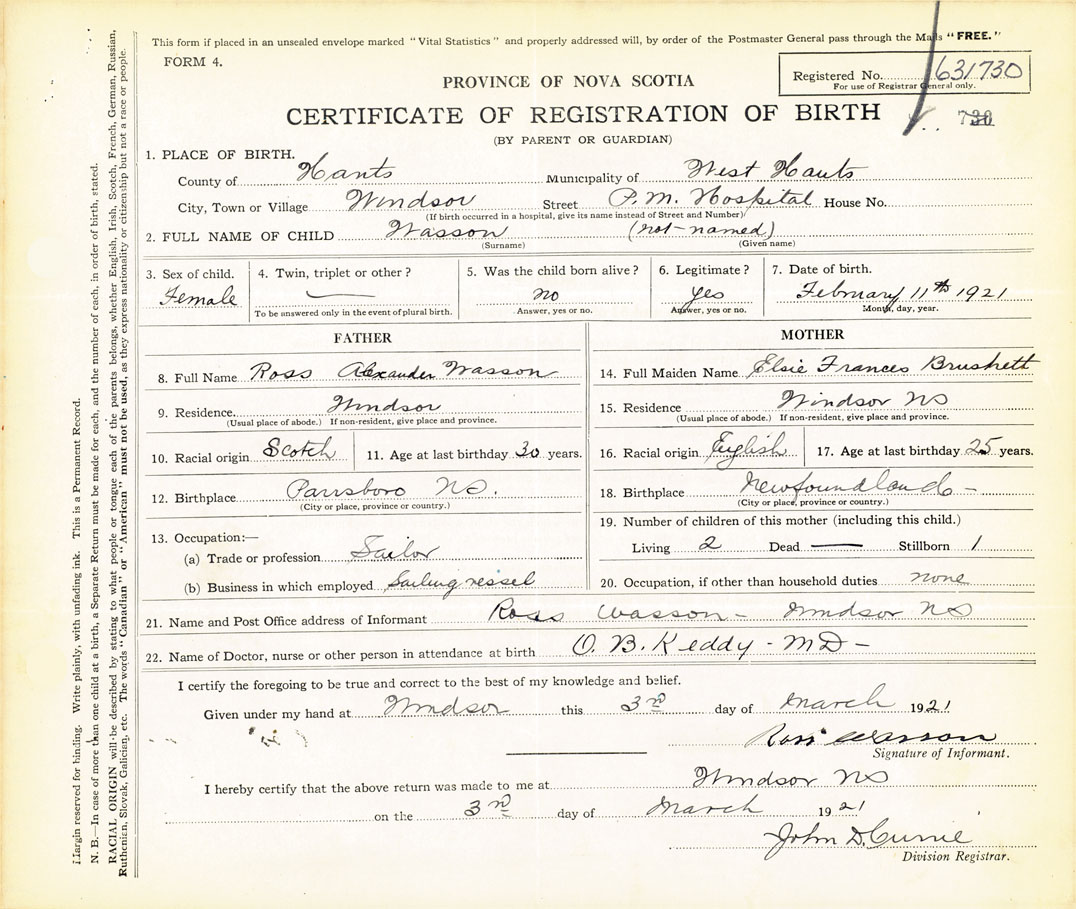 This form if placed in an unsealed envelope marked "Vital Statistics" and properly addressed will, by order of the Postmaster General pass through the Mails "FREE."
FORM 4.
Registered No. 631730
For use of Registrar General only.
PROVINCE OF NOVA SCOTIA
CERTIFICATE OF REGISTRATION OF BIRTH
(BY PARENT OR GUARDIAN)
1. PLACE OF BIRTH.
County of Hants Municipality of West Hants
City, Town or Village Windsor Street P.M. Hospital House No.
(If birth occurred in a hospital, give its name instead of Street and Number)
2. FULL NAME OF CHILD Wasson (not-named)
(Surname) (Given name)
3. Sex of child. 4. Twin, triplet or other? 5. Was the child born alive? 6. Legitimate? 7. Date of birth.
Female — no yes February 11th 1921
To be answered only in the event of plural birth. Answer, yes or no. Answer, yes or no. Month, day, year.
FATHER
8. Full Name Ross Alexander Wasson
9. Residence. Windsor
(Usual place of abode.) If non-resident, give place and province.
10. Racial origin Scotch 11. Age at last birthday 30 years.
12. Birthplace Parrsboro NS.
(City or place, province or country.)
13. Occupation:—
(a) Trade or profession Sailor
(b) Business in which employed Sailing vessel
MOTHER
14. Full Maiden Name Elsie Frances Brushett
15. Residence Windsor NS
(Usual place of abode.) If non-resident, give place and province.
16. Racial origin English 17. Age at last birthday 25 years.
18. Birthplace Newfoundland -
(City or place, province or country.)
19. Number of children of this mother (including this child.)
Living 2 Dead — Stillborn 1
20. Occupation, if other than household duties none
21. Name and Post Office address of Informant Ross Wasson - Windsor NS
22. Name of Doctor, nurse or other person in attendance at birth O. B. Keddy - MD -
I certify the foregoing to be true and correct to the best of my knowledge and belief.
Given under my hand at Windsor this 3rd day of March 1921
Ross Wasson
Signature of Informant.
I hereby certify that the above return was made to me at Windsor NS
on the 3rd day of March 1921
John D. Currie
Division Registrar.
Margin reserved for binding. Write plainly, with unfading ink. This is a Permanent Record.
N. B.—In case of more than one child at a birth, a Separate Return must be made for each, and the number of each, in order of birth, stated.
RACIAL ORIGIN will be described by stating to what people or tongue each of the parents belongs, whether English, Irish, Scotch, French, German, Russian,
Ruthenian, Slovak, Galician, etc. The words "Canadian" or "American must not be used, as they express nationality or citizenship but not a race or people.